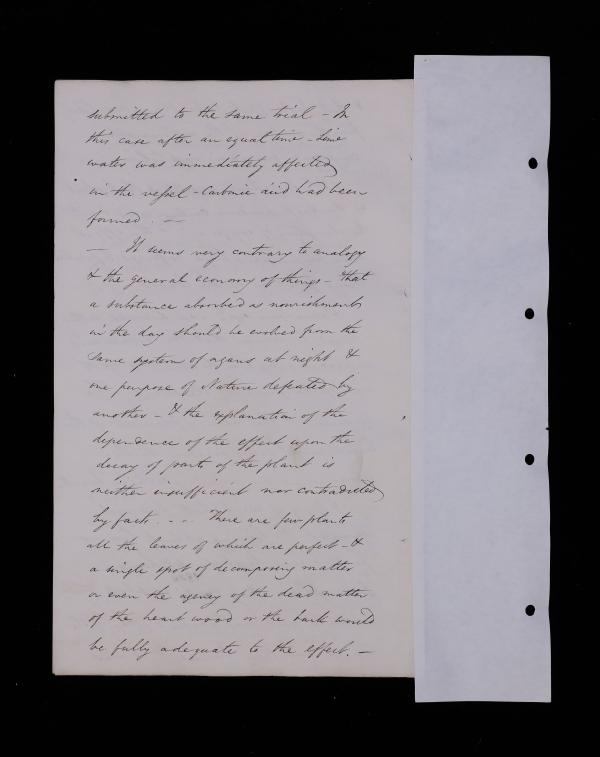 submitted to the same trial - In
this case after an equal time - Lime
water was immediately affected
in the vessel - Carbonic acid had been
formed. —
— It seems very contrary to analogy
& the general economy of things - that
a substance absorbed as nourishment
in the day should be evolved from the
same system of organs at night &
one purpose of Nature defeated by
another - & the explanation of the
dependence of the effect upon the
decay of parts of the plant is
neither insufficient nor contradicted
by facts. - . There are few plants
all the leaves of which are perfect - &
a single spot of decomposing matter
or even the agency of the dead matter
of the heart wood or the bark would
be fully adequate to the effect. —